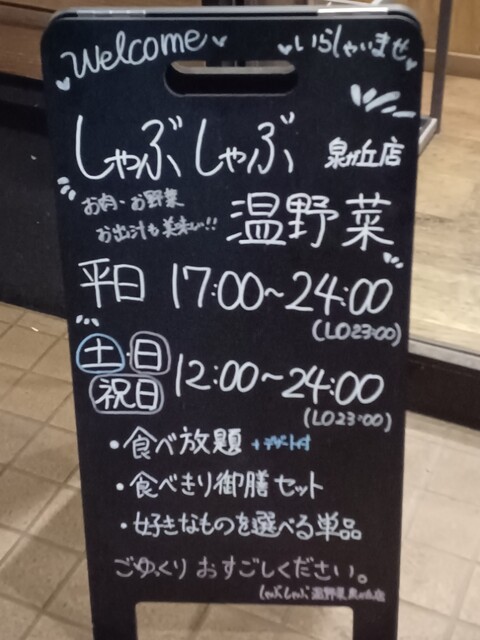 welcome いらしゃいませ
しゃぶしゃぶ 泉ヶ丘店
お肉・お野菜
お出汁も美味い!! 温野菜
平日 17:00~24:00
(LO23:00)
土・日
祝日 12:00~24:00
(LO23:00)
・食べ放題 +デザート付
・食べきり御膳セット
・好きなものを選べる単品
ごゆっくり おすごしください。
しゃぶしゃぶ 温野菜 泉ヶ丘店